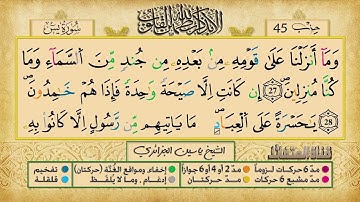 سُورَةُ يسٓ
أَلَا بِذِكْرِ اللَّهِ تَطْمَئِنُّ الْقُلُوبُ
حزب 45
وَمَآ أَنزَلْنَا عَلَىٰ قَوْمِهِۦ مِنۢ بَعْدِهِۦ مِن جُندٍ مِّنَ ٱلسَّمَآءِ وَمَا
كُنَّا مُنزِلِينَ 27 إِن كَانَتْ إِلَّا صَيْحَةً وَٰحِدَةً فَإِذَا هُمْ خَٰمِدُونَ 28
يَٰحَسْرَةً عَلَى ٱلْعِبَادِ مَا يَاتِيهِم مِّن رَّسُولٍ اِلَّا كَانُوا۟ بِهِۦ
الشيخ ياسين الجزائري
مدّ 6 حركات لزوماً مدّ 2 أو 4 أو 6 جوازاً إخفاء ومواقع الغُنَّة (حركتان) تفخيم
مدّ مشبع 6 حركات مدّ حركتان إدغام ، وما لا يُلفَظ قلقلة